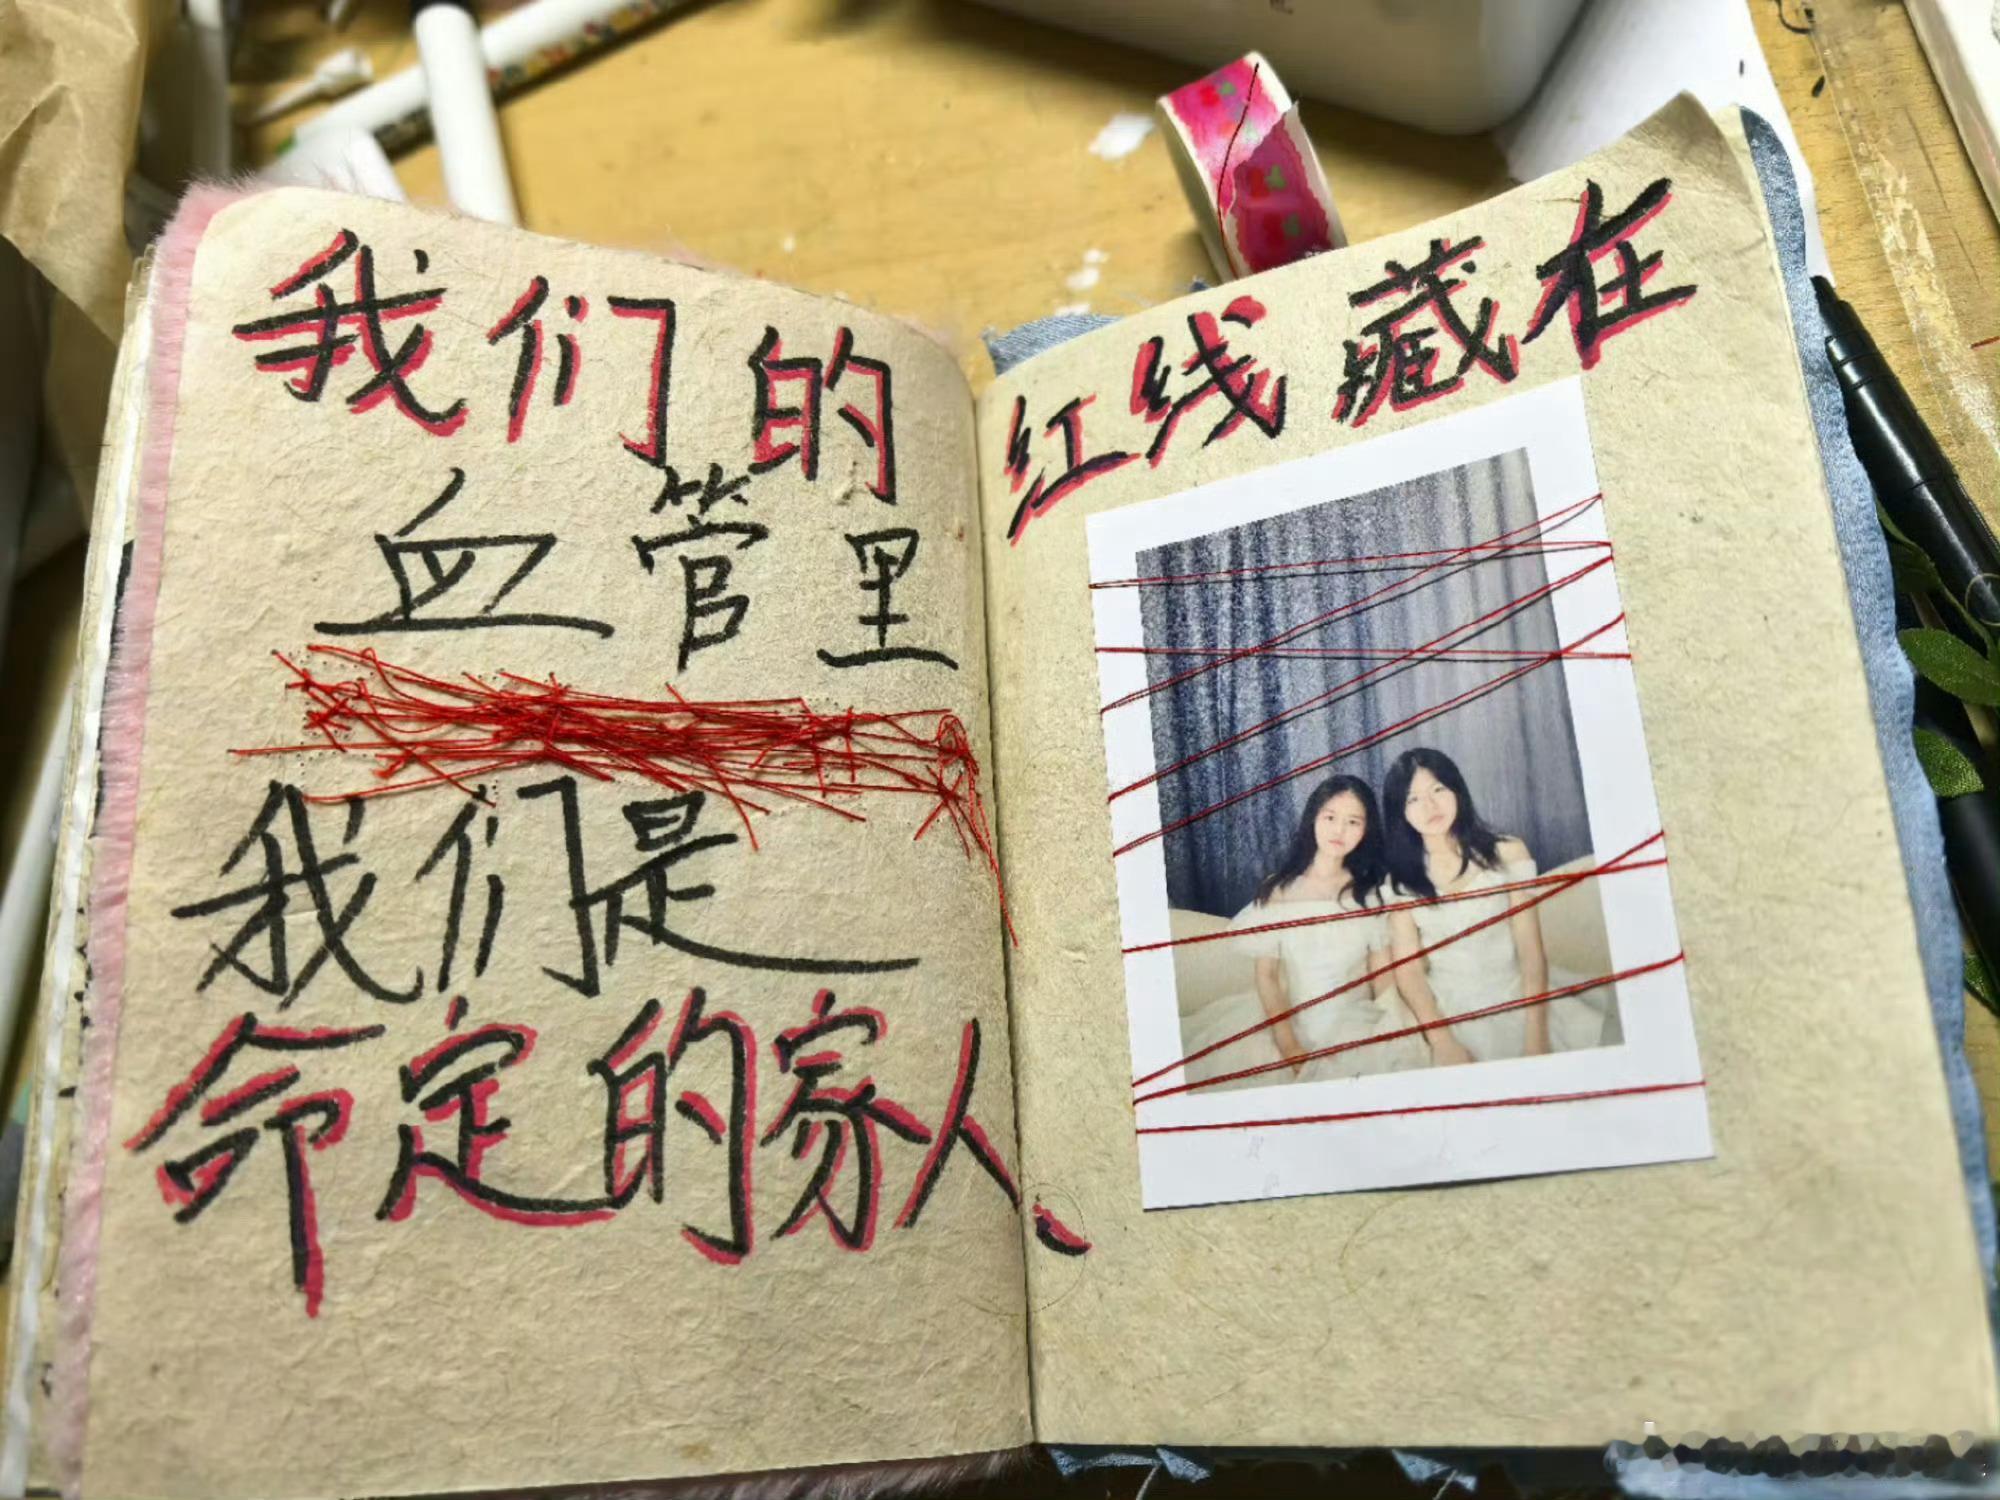 我们的 红线藏在
血管里
我们是
命定的家人